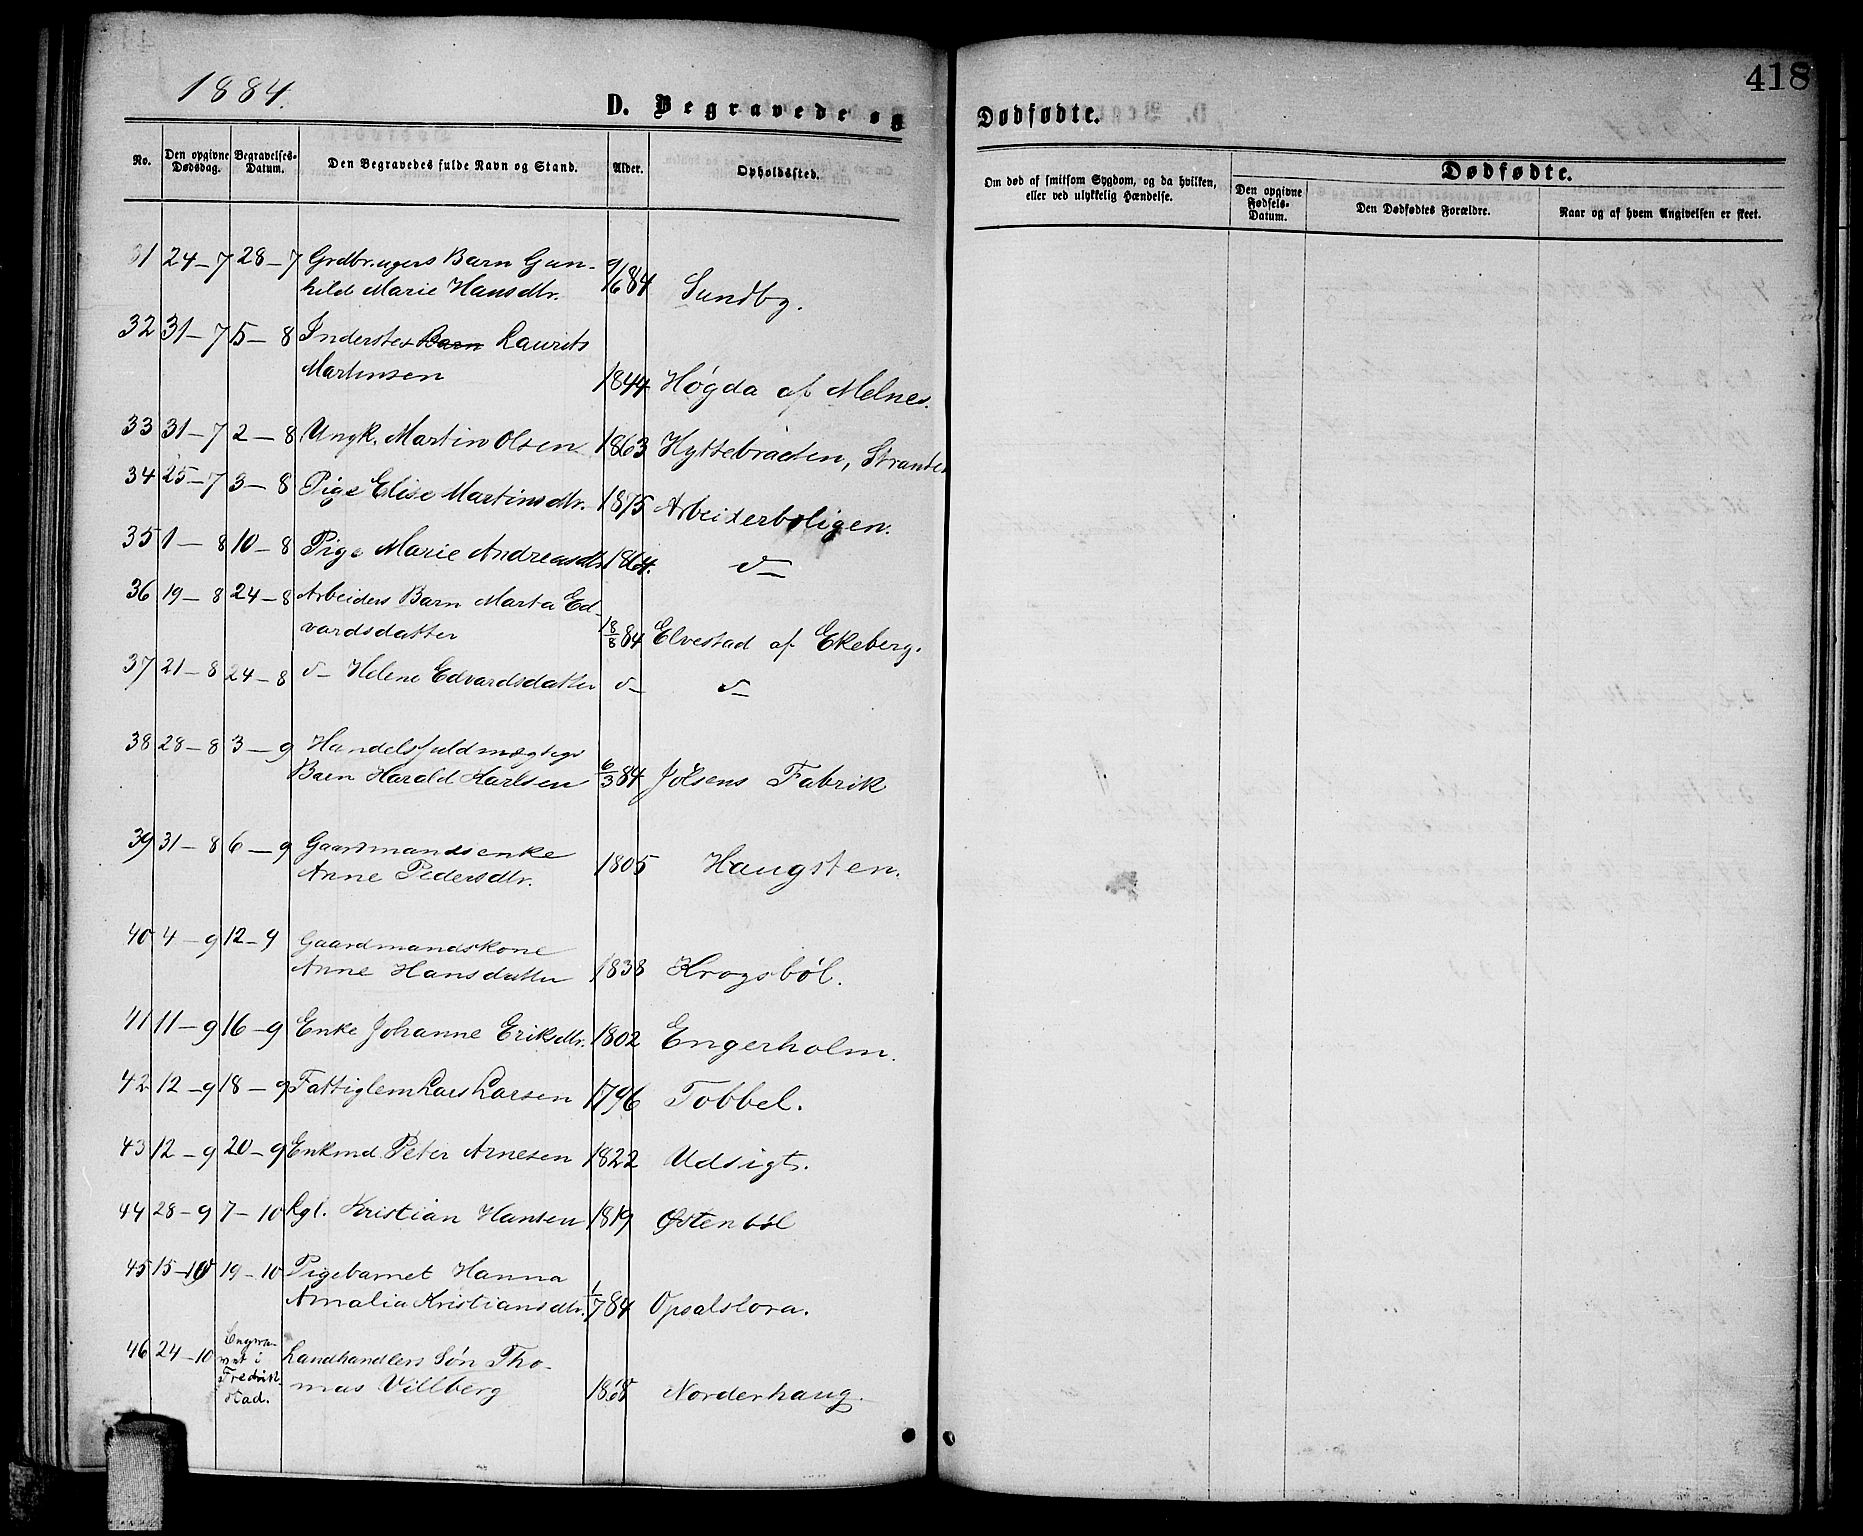 1884.
418
D. Begravede og
Dødfødte.
No.
Den opgivne Dødsdag.
Begravelses-Datum.
Den Begravedes fulde Navn og Stand.
Alder.
Opholdssted.
Om død af smitsom Sygdom, og da hvilken,
eller ved ulykkelig Hændelse.
Dødfødte.
Den opgivne Fødsels-Datum.
Den Dødfødtes Forældre.
Naar og af hvem Angivelsen er skeet.
31 24-7 28-7 Grdbrugers Barn Gun-
hild Marie Hansdtr. 9/6 84 Sundby.
32 31-7 5-8 Inderster Barn Laurits
Martinsen 1844 Høgda af Melnes.
33 31-7 2-8 Ungk. Martin Olsen 1863 Hyttebråten,
34 25-7 3-8 Pige Elise Martinsdtr. 1875 Arbeiderboligen.
35 1-8 10-8 Pige Marie Andreasdtr 1864. d-
36 19-8 24-8 Arbeiders Barn Marta Ed-
vardsdatter 18/8 84 Elvestad af Ekeberg.
37 21-8 24-8 d- Helene Edvardsdatter d- d-
38 28-8 3-9 Handelsfuldmægtigs
Barn Harald Karlsen 6/3 84 Jølsens Fabrik
39 31-8 6-9 Gaardmandsenke
Anne Pedersdtr. 1805 Haugsten.
40 4-9 12-9 Gaardmandskone
Anne Hansdatter 1838 Krogsbøl.
41 11-9 16-9 Enke Johanne Eriksdtr. 1802 Engerholm.
42 12-9 18-9 Fattiglem Lars Larsen 1796 Tobbel.
43 12-9 20-9 Enkmd. Peter Arnesen 1822 Udsigt.
44 28-9 7-10 Lgl. Kristian Hansen 1819 Østenbøl
45 15-10 19-10 Pigebarnet Hanna
Amalia Kristiansdtr. 1/7 84 Opsalstora.
46 24-10 i Fredrik-
stad. Landhandlers Søn Tho-
mas Villberg 1868 Norderhaug.